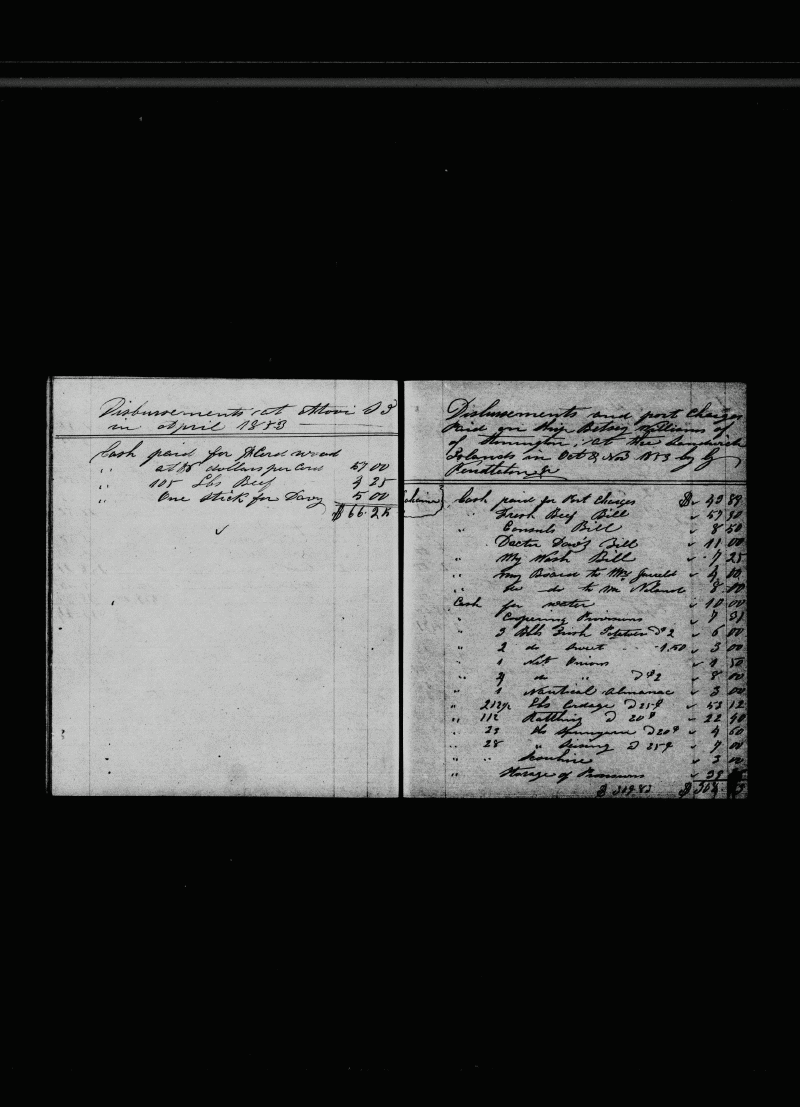 Disbursements at Mowi S I
in April 1853
Cash paid for Cord wood
" at dollars per Cord 57 00
" 105 Lbs Beef 4 25
" One stick for Davy 5 00
$ 66.25
Disbursements and port Charges
Paid on Ship Betsey Williams of
of Stonington, at the Sandwich
Islands in Oct & Nov 1853 by G
Pendleton Jr
Cash paid for Port Charges $ 43 88
" Fresh Beef Bill 57 30
" Consuls Bill 8 50
" Docter Dow's Bill 11 00
" My Wash Bill 7 25
" my Board to Mrs 4 00
" do do to Mr 8 00
Cash for water 10 00
" Coopering Provisions 7
" 3 Bbls Irish Potatoes @ $2 6 00
" 2 do Sweet " 1.50 3 00
" 1 Onions 50
" 4 do " @ $2 8 00
" 1 Nautical Almanac 3 00
" 212½ Lbs Cordage @ 25¢ 53 12
" 112 Rattling @ 20¢ 22 40
" 23 lbs @ 20¢ 4 60
" 28 " Seizing @ 25¢ 7 00
" " 3 00
" Storage of Provisions 39
$ 309.83 $ 309